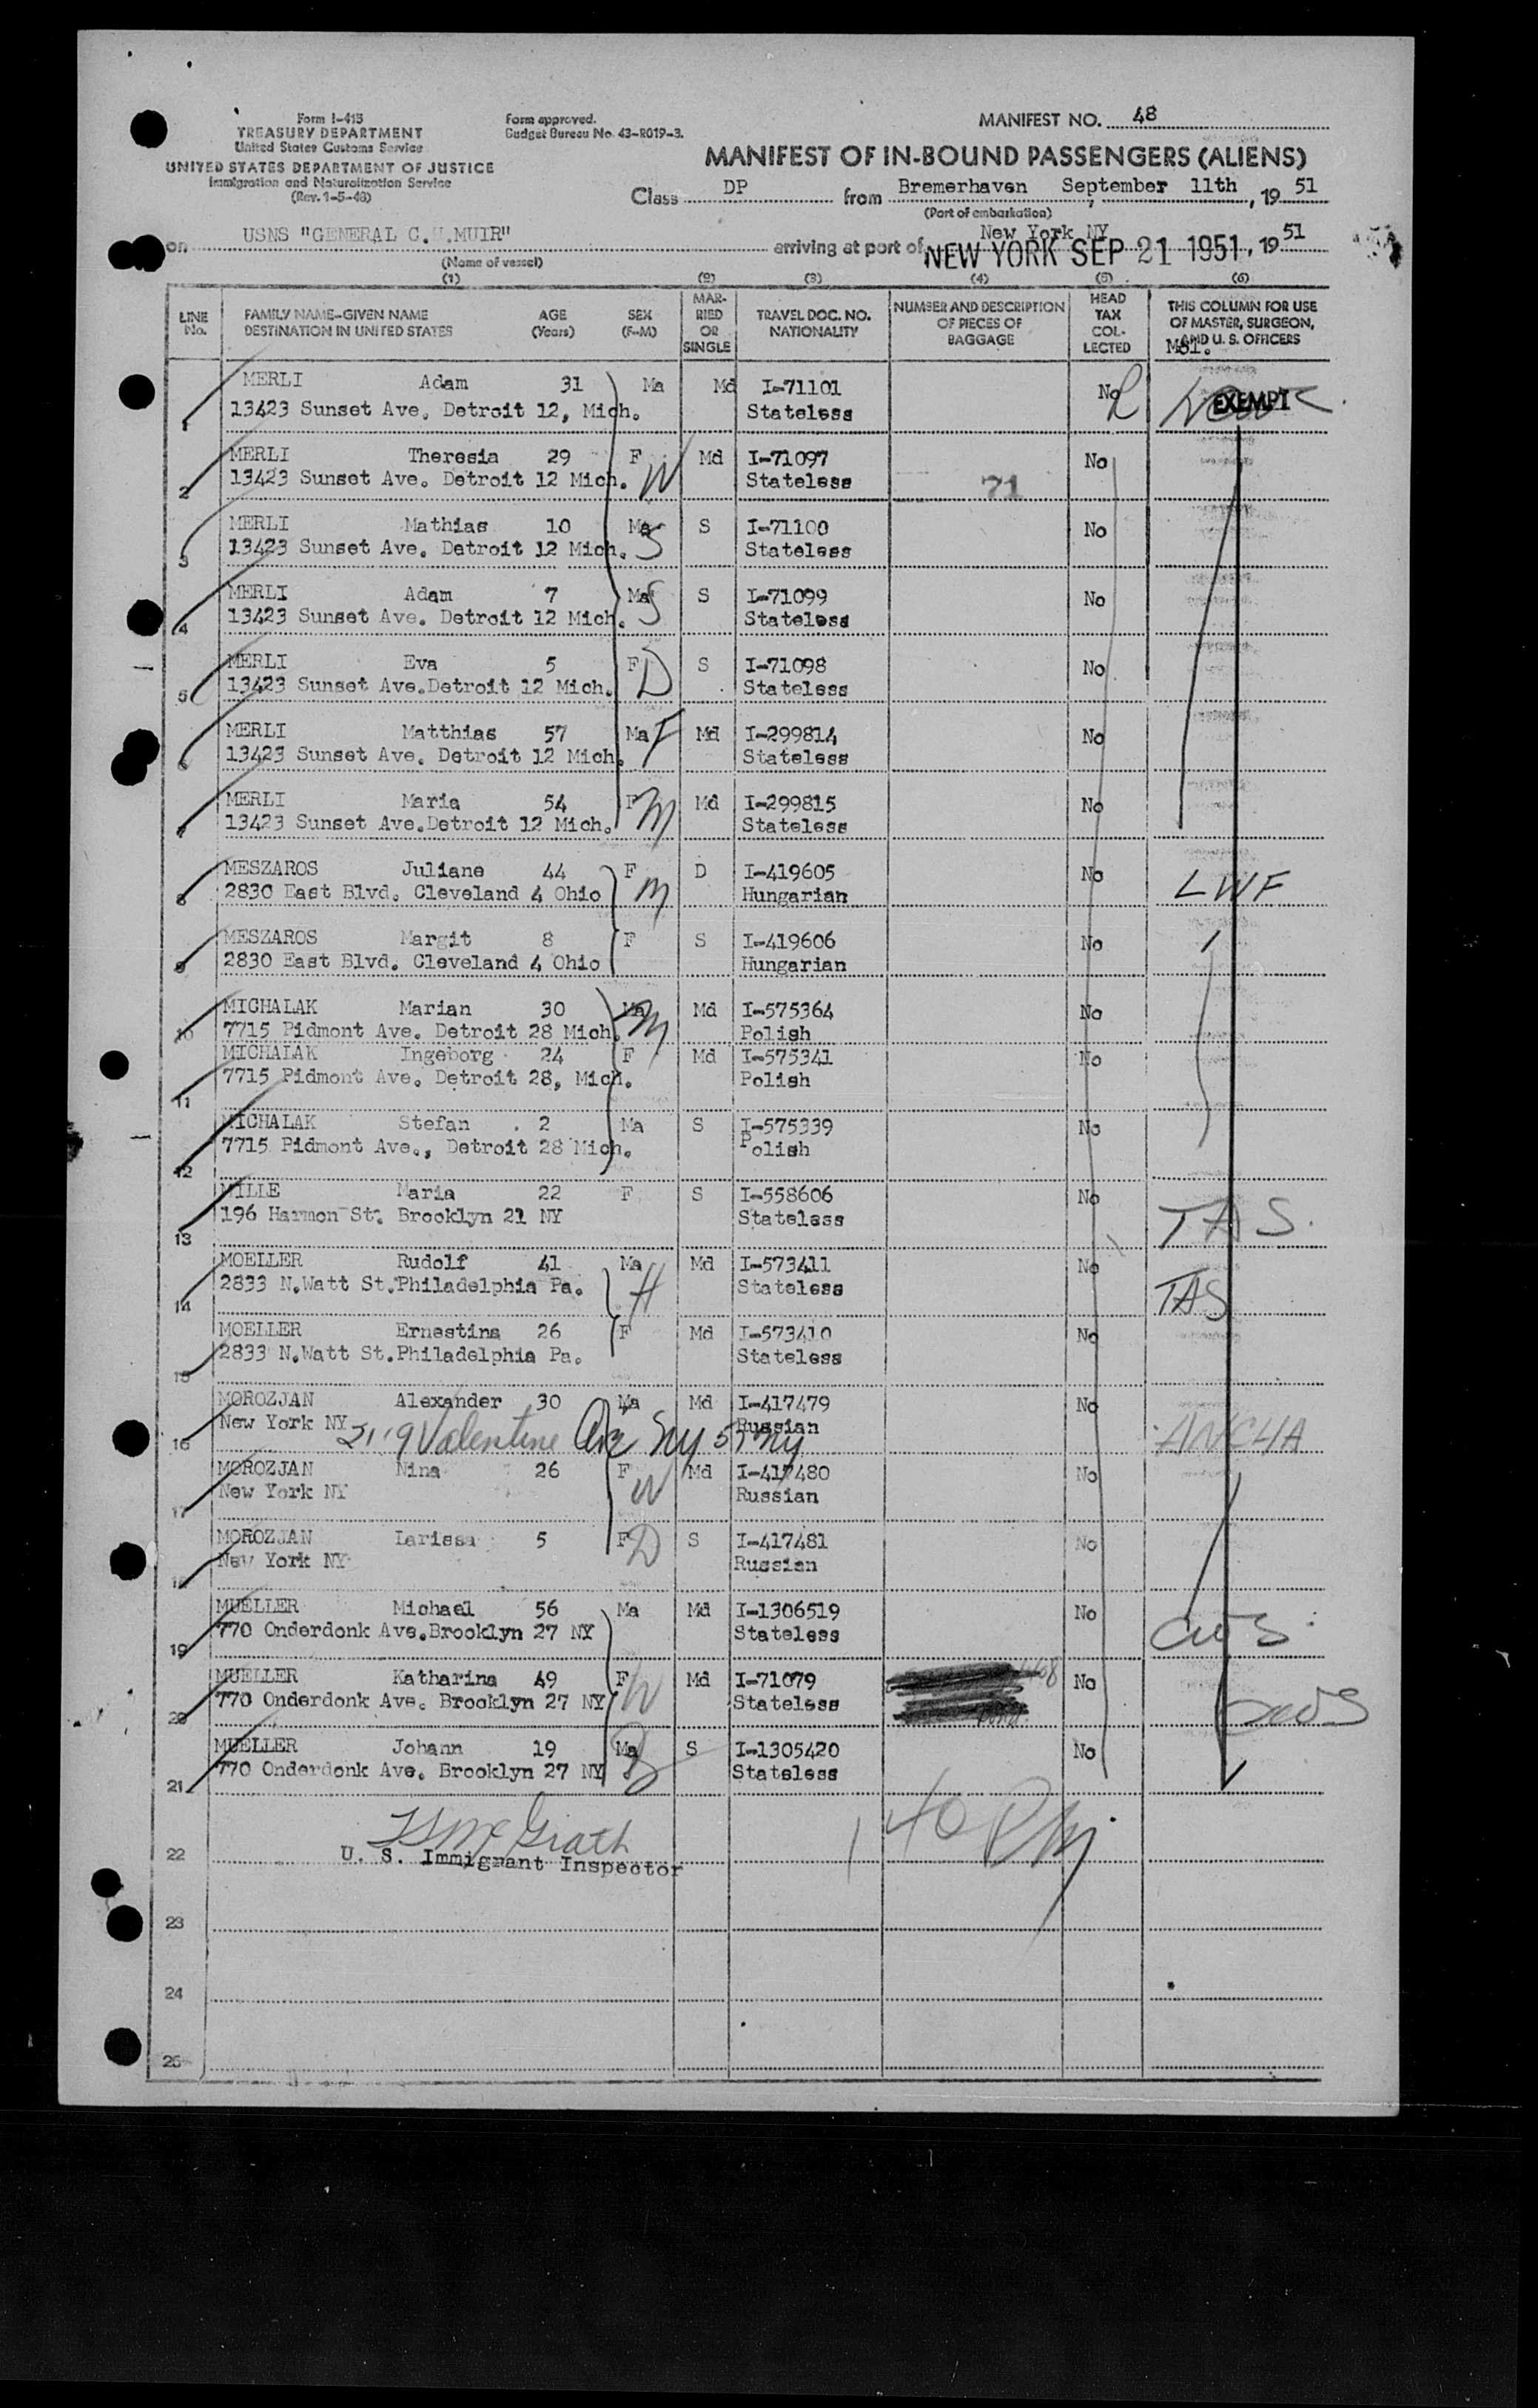 Form I-415
TREASURY DEPARTMENT
United States Customs Service
UNITED STATES DEPARTMENT OF JUSTICE
Immigration and Naturalization Service
(Rev. 1-5-48)
Form approved.
Budget Bureau No. 43-R019-3.
MANIFEST NO. 48
MANIFEST OF IN-BOUND PASSENGERS (ALIENS)
Class DP from Bremerhaven, September 11th, 19 51
(Port of embarkation)
on USNS "GENERAL C.H.MUIR" arriving at port of New York NY, 19 51
NEW YORK SEP 21 1951
(Name of vessel)
(1) (2) (3) (4) (5) (6)
LINE No. FAMILY NAME-GIVEN NAME DESTINATION IN UNITED STATES AGE (Years) SEX (F-M) MARRIED OR SINGLE TRAVEL DOC. NO. NATIONALITY NUMBER AND DESCRIPTION OF PIECES OF BAGGAGE HEAD TAX COLLECTED THIS COLUMN FOR USE OF MASTER, SURGEON, AND U. S. OFFICERS
1 MERLI Adam 31 Ma Md I-71101 No EXEMPT
13423 Sunset Ave. Detroit 12, Mich. Stateless
2 MERLI Theresia 29 F W Md I-71097 No
13423 Sunset Ave. Detroit 12 Mich. Stateless 71
3 MERLI Mathias 10 Ma S S I-71100 No
13423 Sunset Ave. Detroit 12 Mich. Stateless
4 MERLI Adam 7 Ma S S I-71099 No
13423 Sunset Ave. Detroit 12 Mich. Stateless
5 MERLI Eva 5 F D S I-71098 No
13423 Sunset Ave.Detroit 12 Mich. Stateless
6 MERLI Matthias 57 Ma F Md I-299814 No
13423 Sunset Ave. Detroit 12 Mich. Stateless
7 MERLI Maria 54 F M Md I-299815 No
13423 Sunset Ave.Detroit 12 Mich. Stateless
8 MESZAROS Juliane 44 F M D I-419605 No LWF
2830 East Blvd. Cleveland 4 Ohio Hungarian
9 MESZAROS Margit 8 F S I-419606 No
2830 East Blvd. Cleveland 4 Ohio Hungarian
10 MICHALAK Marian 30 Ma M Md I-575364 No
7715 Pidmont Ave. Detroit 28 Mich. Polish
11 MICHALAK Ingeborg 24 F Md I-575341 No
7715 Pidmont Ave. Detroit 28, Mich. Polish
12 MICHALAK Stefan 2 Ma S I-575339 No
7715 Pidmont Ave., Detroit 28 Mich. Polish
13 MILLE Maria 22 F S I-558606 No
196 Harmon St. Brooklyn 21 NY Stateless TAS.
14 MOELLER Rudolf 41 Ma H Md I-573411 No
2833 N.Watt St.Philadelphia Pa. Stateless TAS
15 MOELLER Ernestina 26 F Md I-573410 No
2833 N.Watt St.Philadelphia Pa. Stateless
16 MOROZJAN Alexander 30 Ma Md I-417479 No
New York NY 2119 Valentine Ave NY 57 NY Russian ANCHA
17 MOROZJAN Nina 26 F W Md I-417480 No
New York NY Russian
18 MOROZJAN Larissa 5 F D S I-417481 No
New York NY Russian
19 MUELLER Michael 56 Ma Md I-1306519 No
770 Onderdonk Ave.Brooklyn 27 NY Stateless CWS.
20 MUELLER Katharina 49 F W Md I-71079 No
770 Onderdonk Ave. Brooklyn 27 NY Stateless CWS
21 MUELLER Johann 19 Ma S S I-1305420 No
770 Onderdonk Ave. Brooklyn 27 NY Stateless
1 40 PM
McGrath
22 U. S. Immigrant Inspector
23
24
25